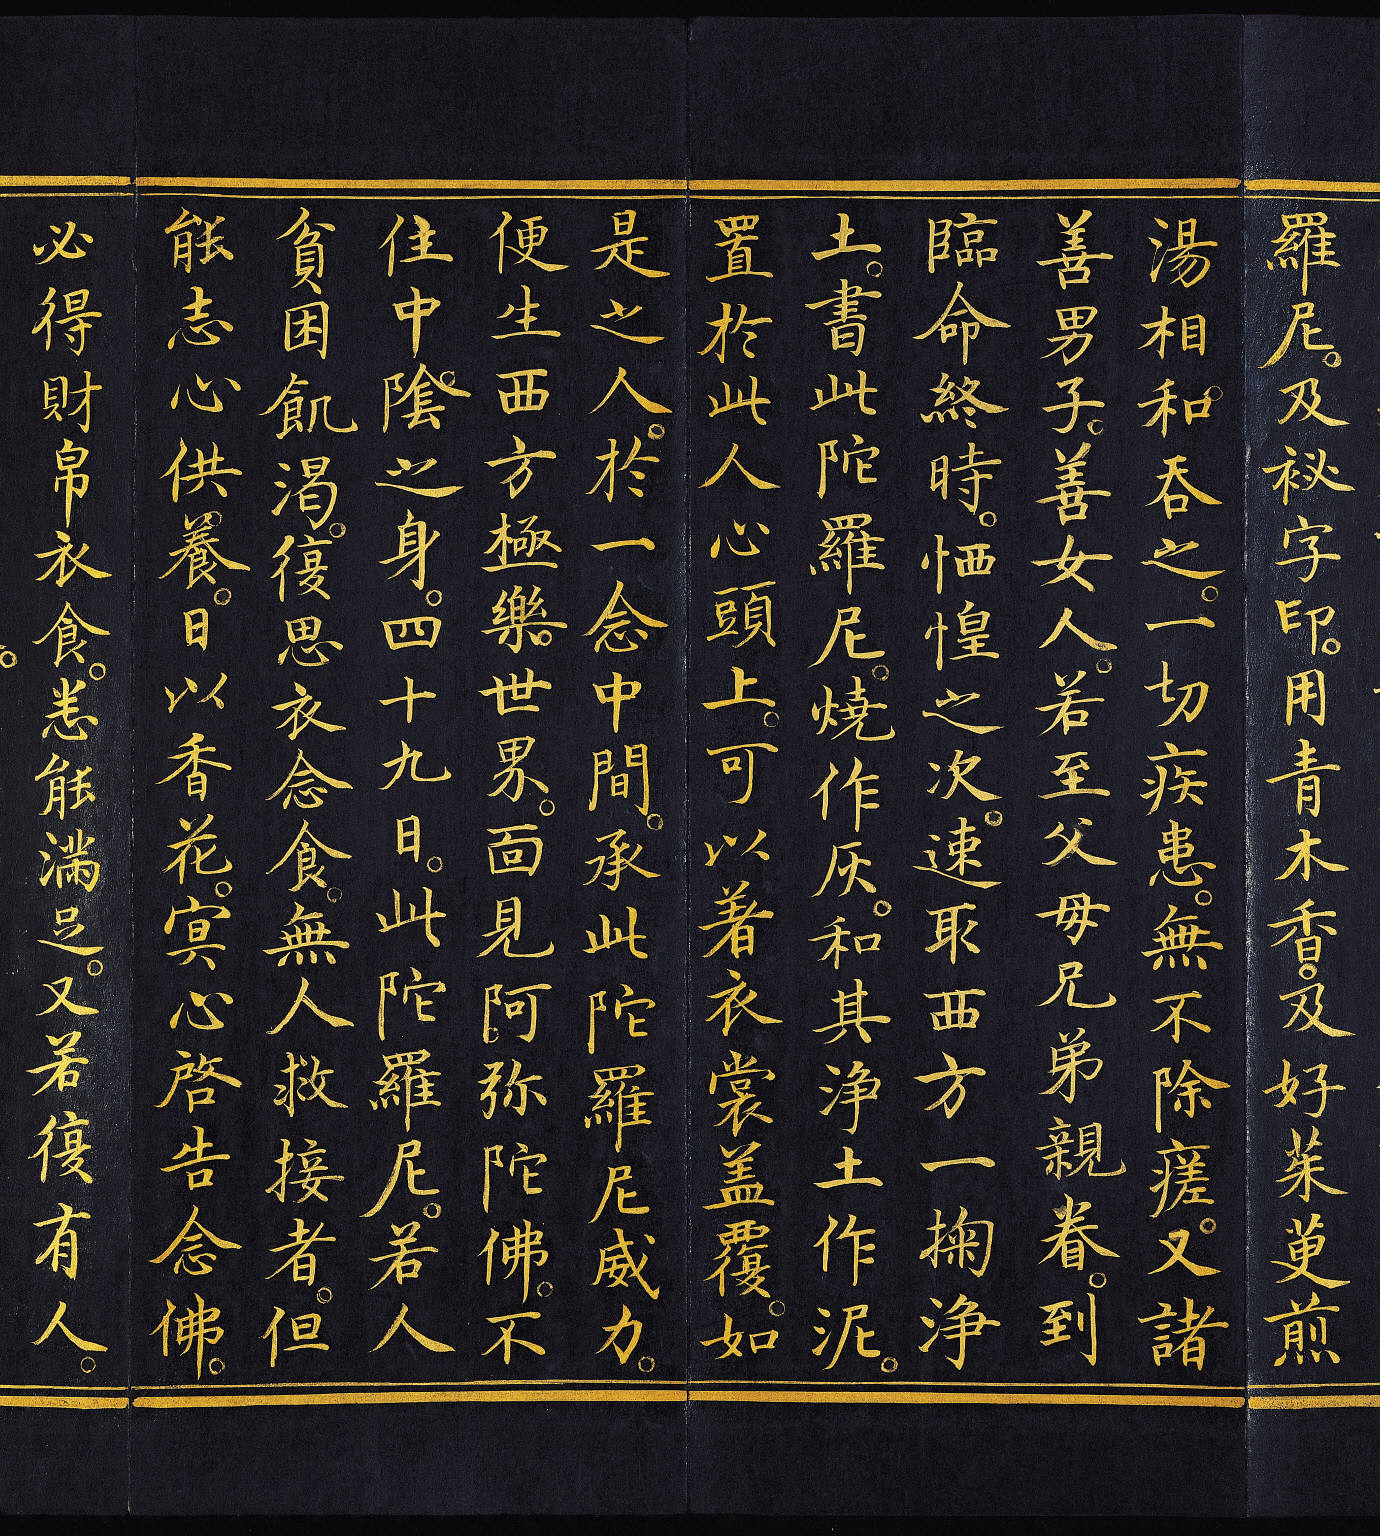 羅尼。及祕字印。用青木香。及好茱萸煎
湯相和。吞之。一切疾患。無不除瘥。又諸
善男子。善女人。若至父母兄弟親眷。到
臨命終時。恓惶之次。速取西方一掬淨
土。書此陀羅尼。燒作灰。和其淨土作泥。
置於此人心頭上。可以著衣裳蓋覆。如
是之人。於一念中間。承此陀羅尼威力。
便生西方極樂。世界。面見阿弥陀佛。不
住中陰之身。四十九日。此陀羅尼。若人
貧困飢渴。復思衣念食。無人救接者。但
能志心供養。日以香花。寘心啓告念佛。
必得財帛衣食。悉能滿足。又若復有人。